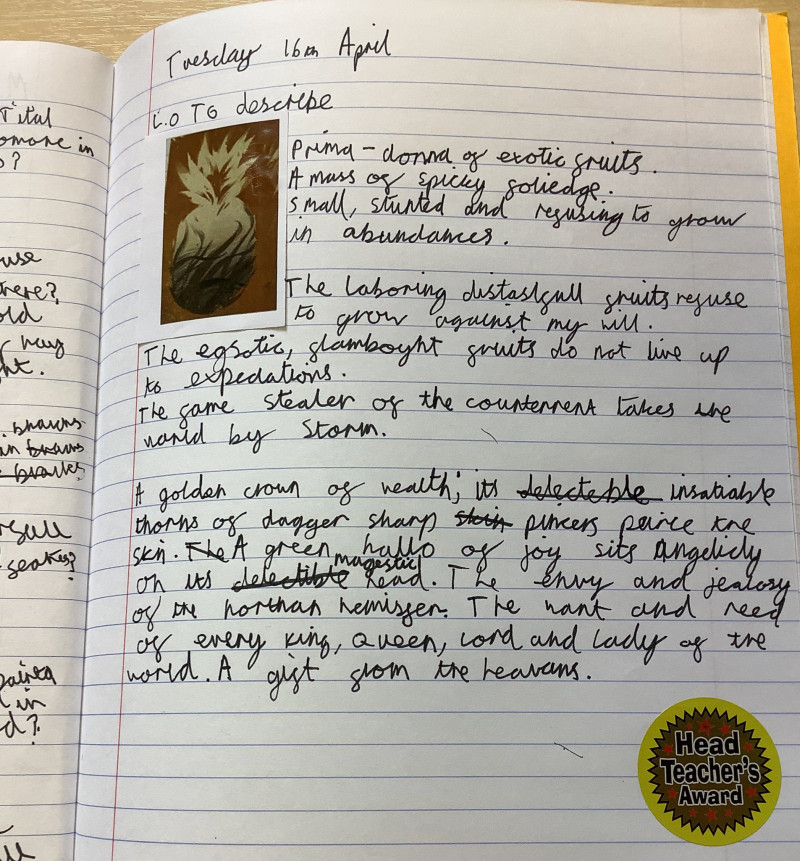 Tital
omore in
o?
use
here?
old
r hay
ht.
. brawns
in brawns
brawles
rgull
seakes?
paired
l in
d?
ull
Tuesday 16th April
L.O To describe
Prima-donna of exotic fruits.
A mass of spicky foliedge.
Small, stunted and refusing to grow
in abundances.
The laboring distasfull fruits refuse
to grow against my will.
The egsotic, flamboyht fruits do not live up
to expedations.
The fame stealer of the counternent takes the
world by storm.
A golden crown of wealth; its delecteble insatiable
thorns of dagger sharp skin pincers peirce the
skin. The A green hallo of joy sits Angelicly
on its delectible magestic head. The envy and jealosy
of the northan hemisfer. The want and need
of every king, Queen, Lord and Lady of the
world. A gift from the heavans.
Head
Teacher's
Award